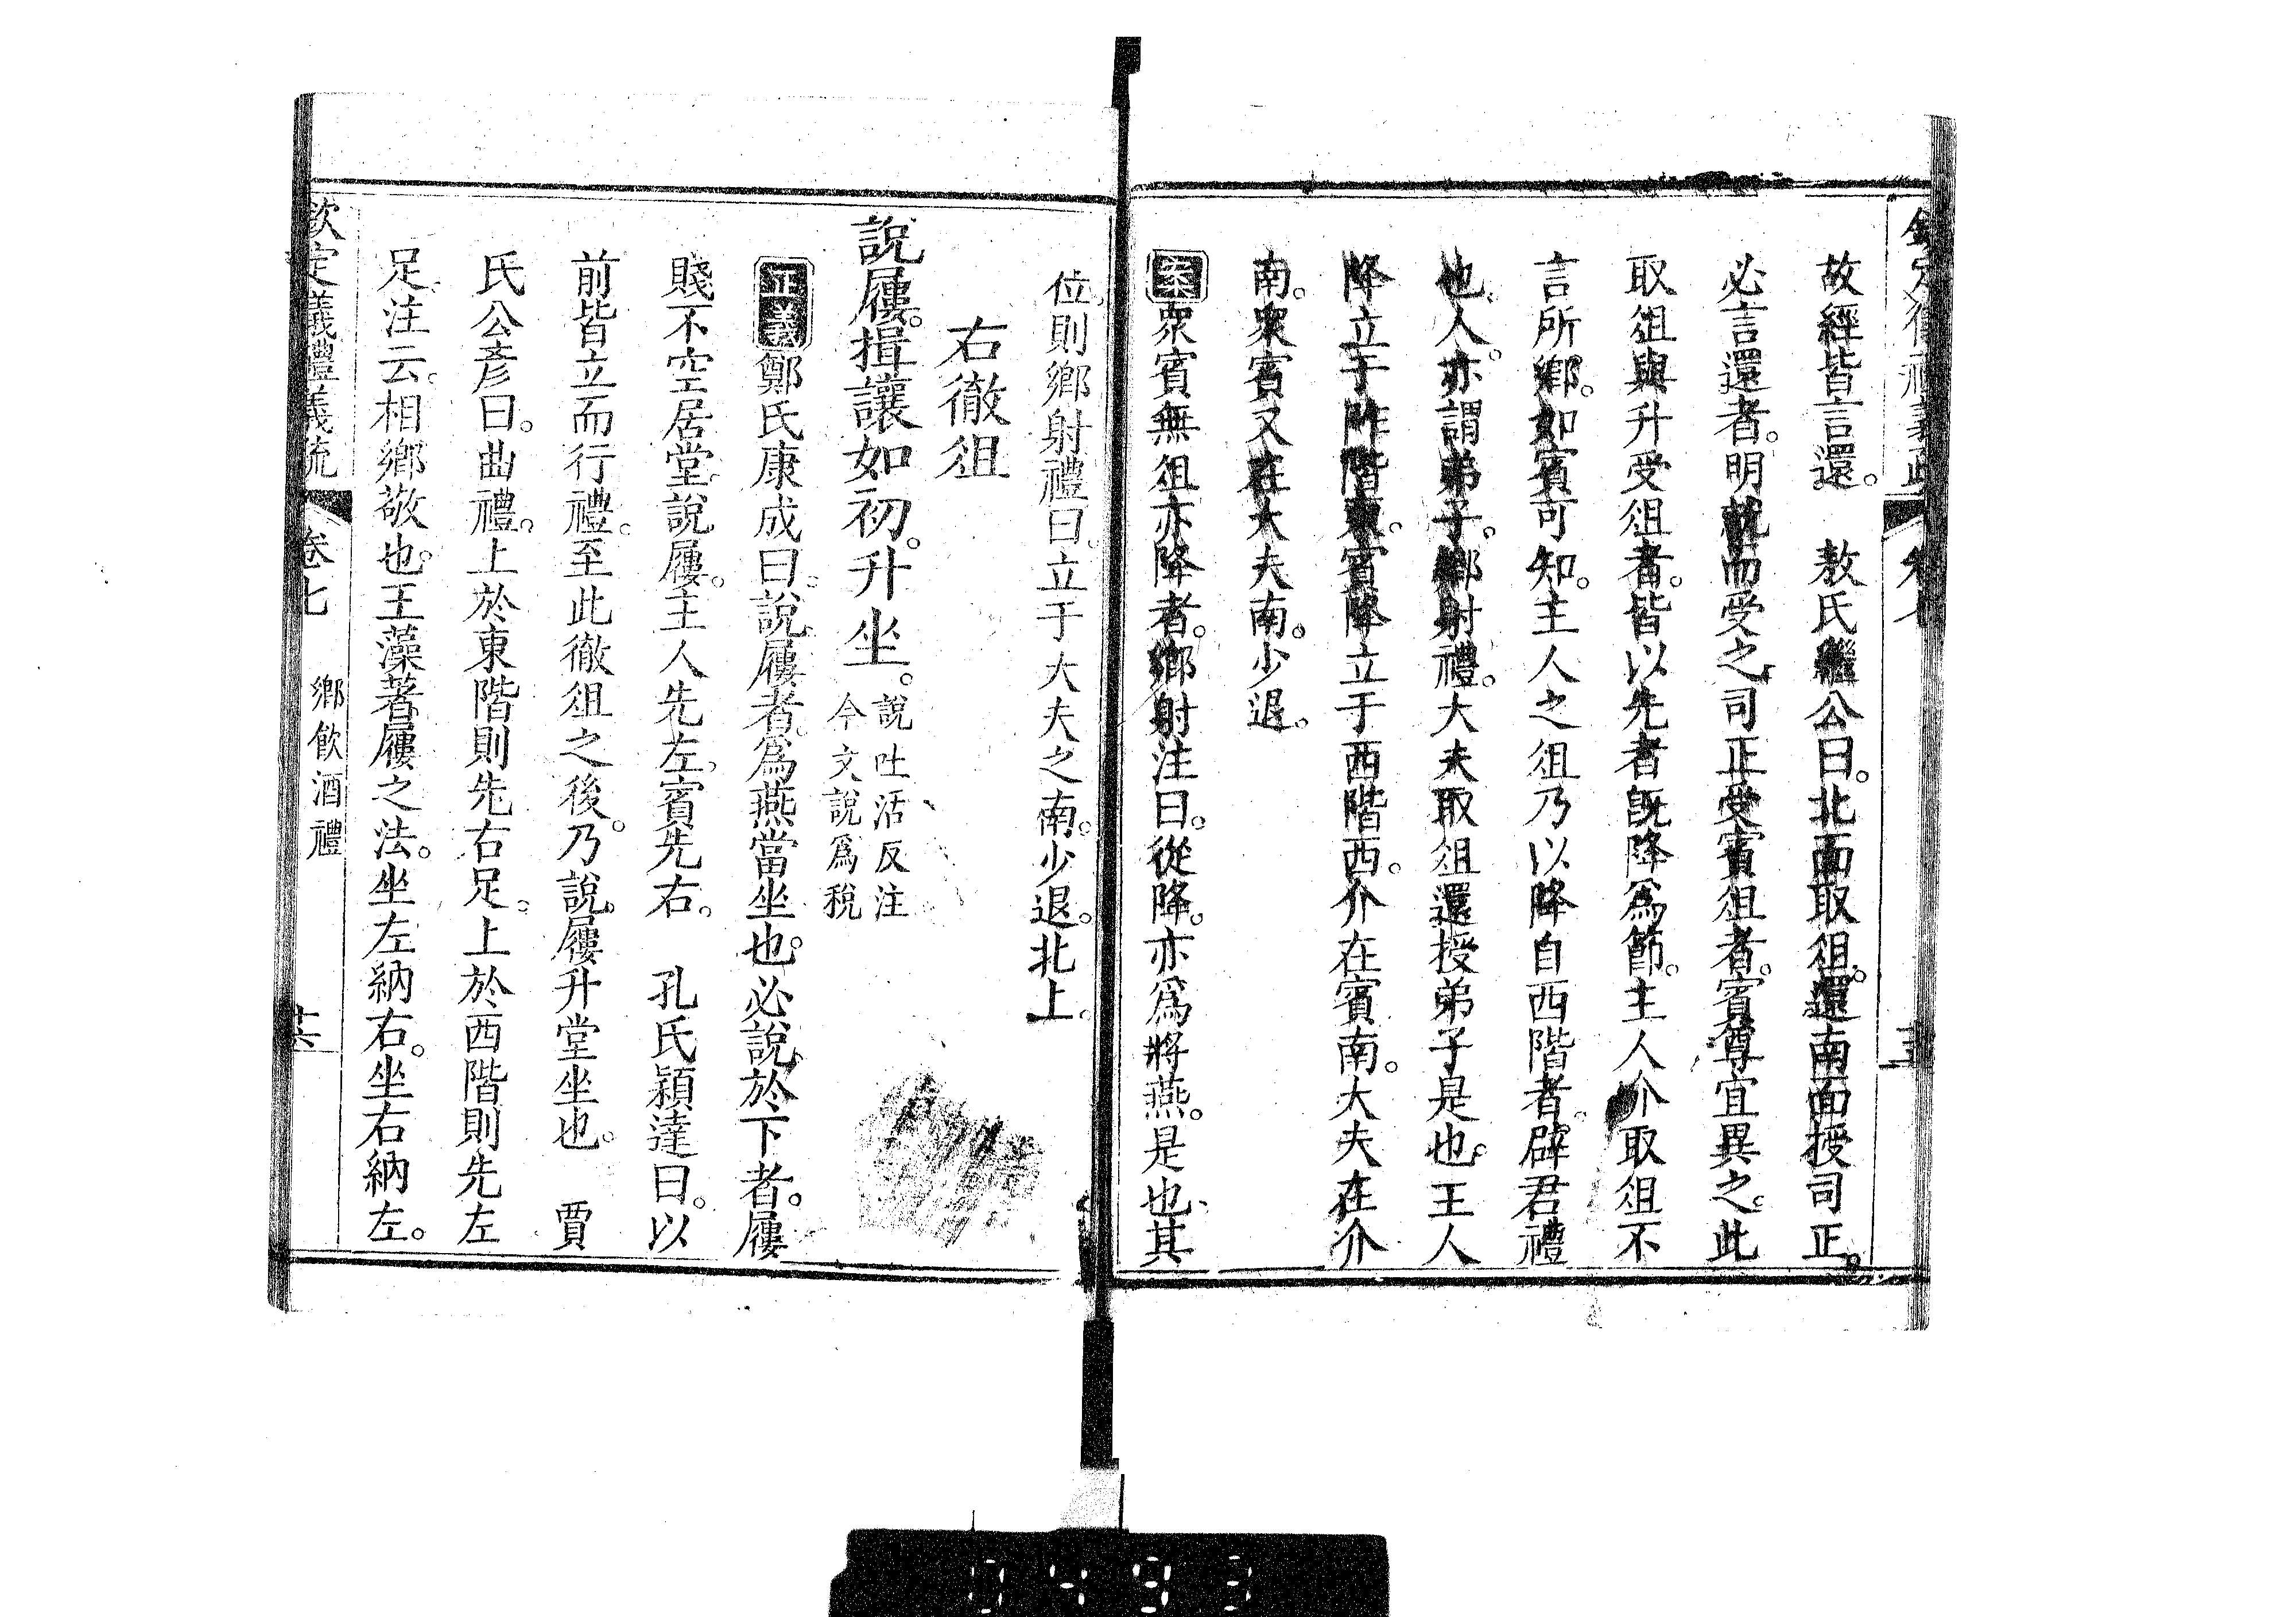 故經皆言還。　敖氏繼公曰。北面取俎。還南面授司正。
必言還者。明就而受之。司正受賓俎者。賓尊宜異之。此
取俎與升受俎者。皆以先者旣降爲節。主人介取俎不
言所鄉。如賓可知。主人之俎乃以降自西階者。辟君禮
也。人。亦謂弟子。鄉射禮。大夫取俎還授弟子是也。主人
降立于阼階東。賓降立于西階西。介在賓南。大夫在介
南。衆賓又在大夫南。少退。
案衆賓無俎亦降者。鄉射注曰。從降。亦爲將燕。是也。其
位則鄉射禮曰。立于大夫之南。少退。北上。
右徹俎
說屨。揖讓如初。升坐。說吐活反注
今文說爲稅
正義鄭氏康成曰。說屨者。爲燕當坐也。必說於下者。屨
賤不空居堂。說屨。主人先左。賓先右。　孔氏穎達曰。以
前皆立而行禮。至此徹俎之後。乃說屨升堂坐也。　賈
氏公彥曰。曲禮。上於東階則先右足。上於西階則先左
足。注云。相鄉敬也。玉藻著屨之法。坐左納右。坐右納左。
欽定儀禮義疏　卷七　鄉飲酒禮
0493